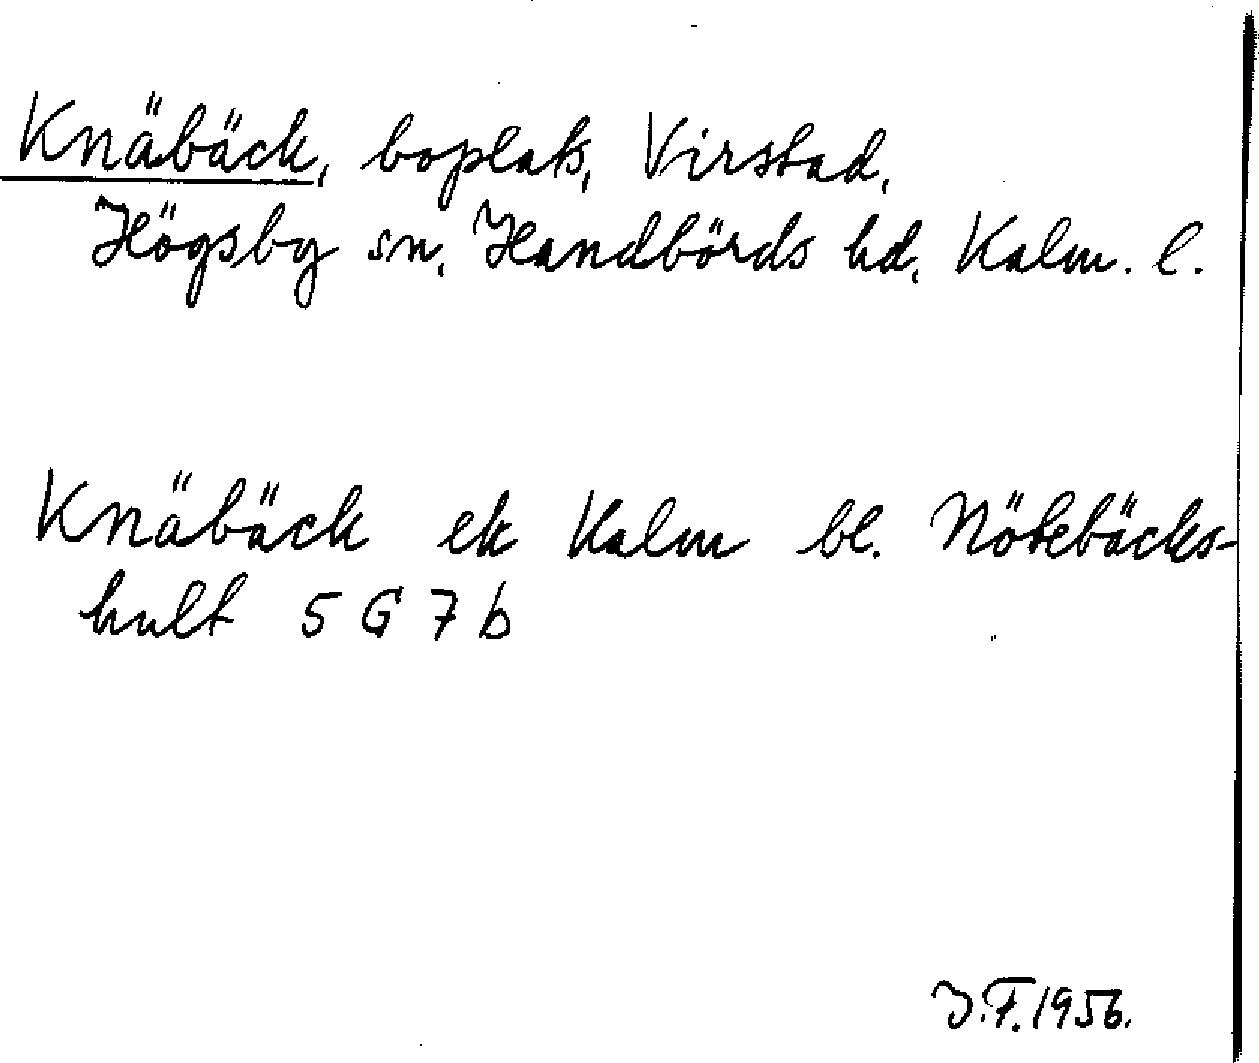 Knäbäck, boplats, Virstad,
Högsby sn, Handbörds hd, Kalm. l.
Knäbäck ek Kalm bl. Nötebäcks-
hult 5 G 7 b
J.F. 1956.